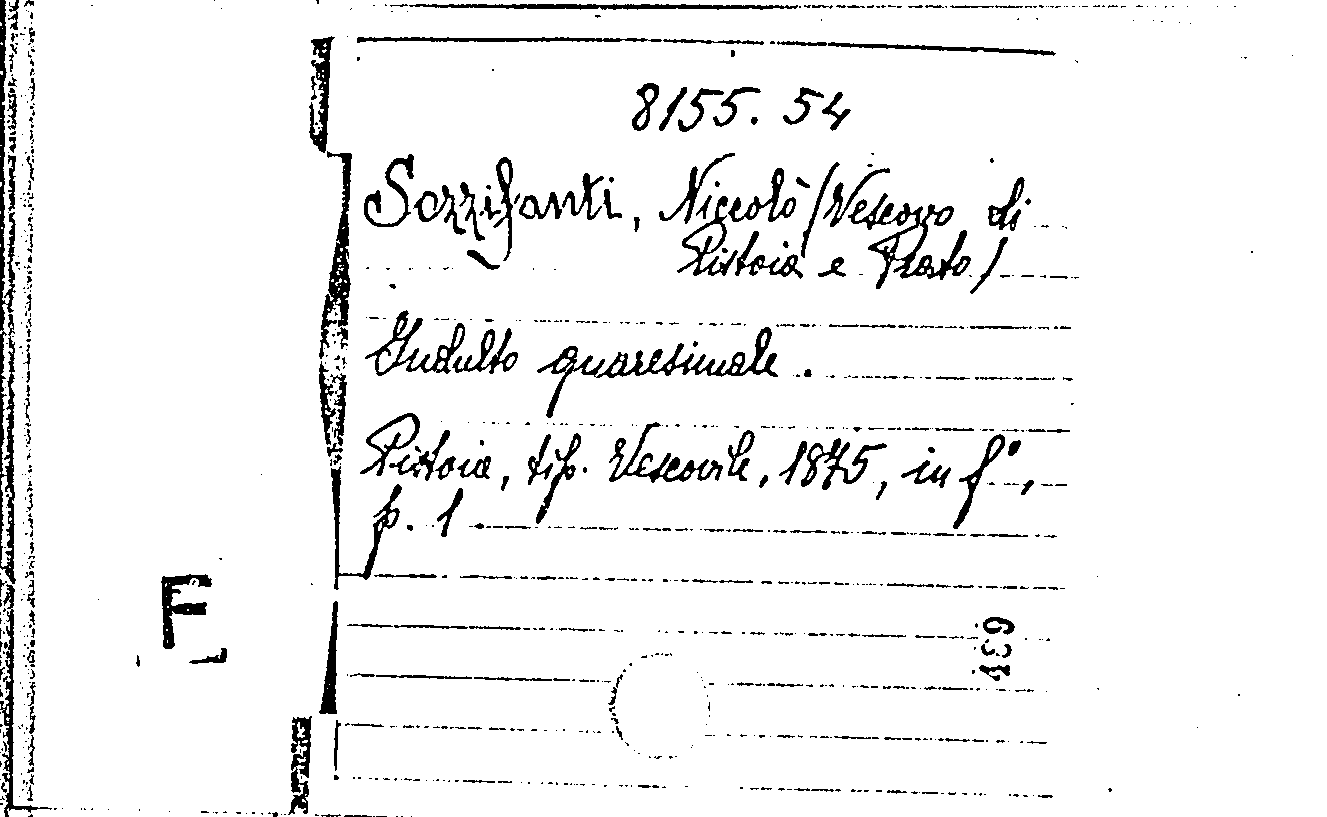 8155. 54
Sozzifanti, Niccolò (Vescovo di
Pistoia e Prato)
Indulto quaresimale.
Pistoia, tip. Vescovile, 1875, in f°,
p. 1
F
489